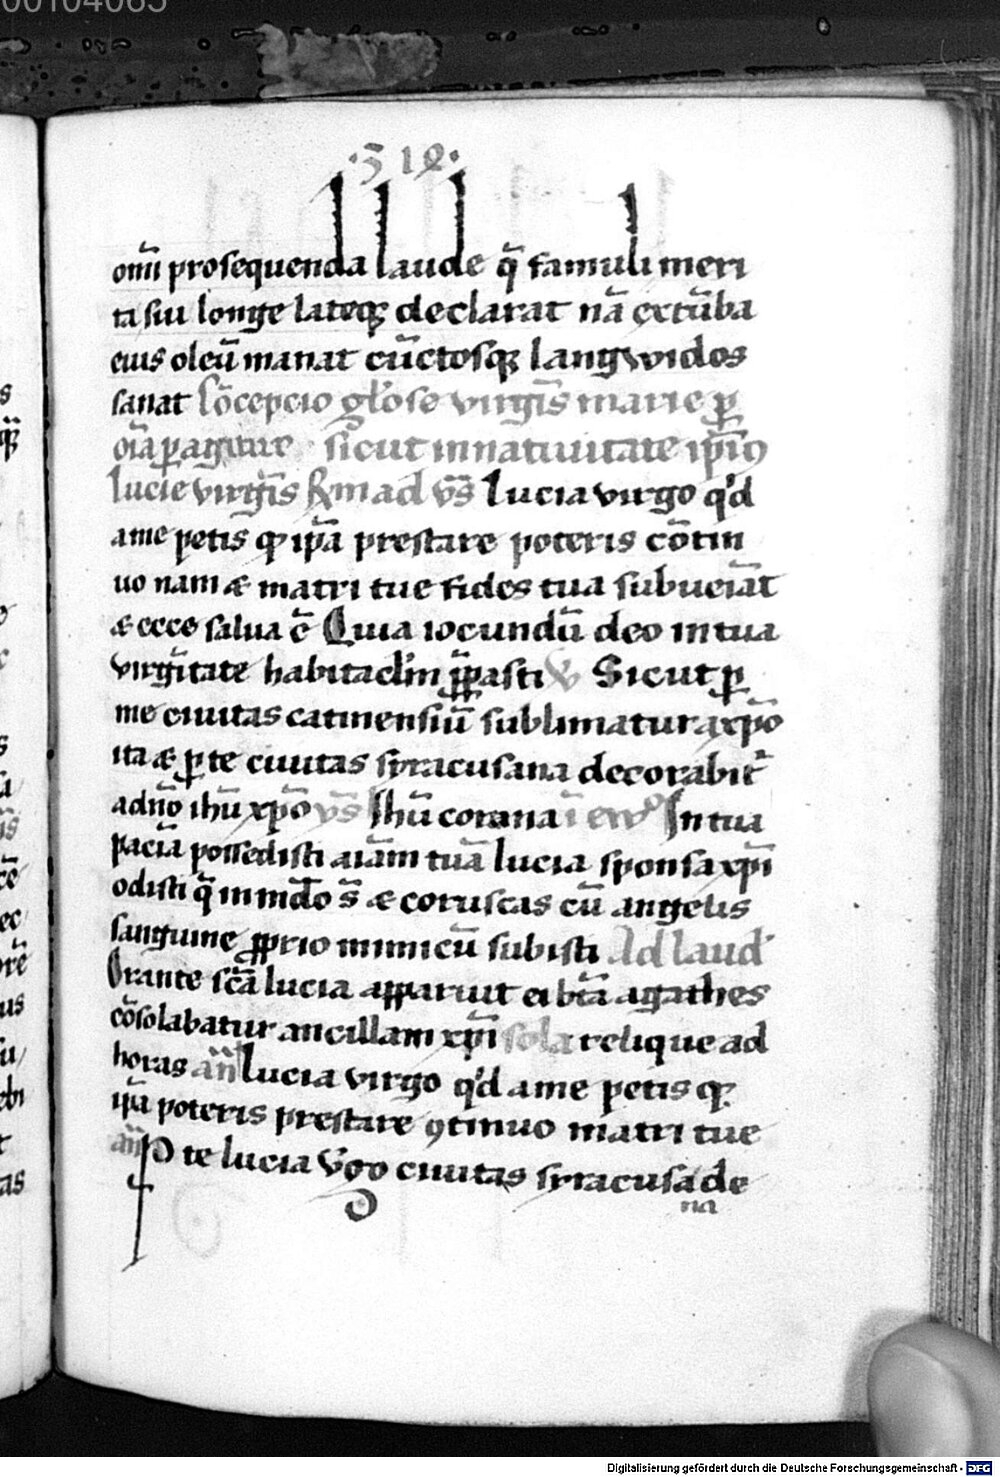 ·312·
om̄i prosequenda laude q̄ famuli meri
ta sui longe lateqꝫ declarat nā ex tūba
eius oleū manat cūctosqꝫ langwidos
sanat Cōcepcio gl'ose virgīs marie ꝑ
oīa ꝑagitur sicut in natiuitate ip̄iꝰ
lucie virgīs R̄m ad v̄s̄ Lucia virgo q'd
a me petis qꝫ ip̄a prestare poteris cōtin
uo nam & matri tue fides tua subueīat
& ecce salua ē Quia iocundū deo in tua
virgītate habitacl'm p̄pasti V Sicut ꝑ
me ciuitas catinensiū sublimatur a xp̄o
ita & ꝑ te ciuitas syracusana decorabit᷑
a dn̄o ihū xp̄o v̄s̄ Ihū corona ī ewo In tua
paciā possedisti aīam tuā lucia sponsa xp̄i
odisti q̄ in mūdo s̄ & coruscas cū angelis
sanguine ꝓprio inimicū subisti Ad laud'
Orante sc̄a lucia apparuit ei bt̄a agathes
cōsolabatur ancillam xp̄i sola relique ad
horas an̄ Lucia virgo q'd a me petis qꝫ
ip̄a poteris prestare ꝯtinuo matri tue
an̄ P te lucia v̄go ciuitas syracusa de
na
Digitalisierung gefördert durch die Deutsche Forschungsgemeinschaft - DFG